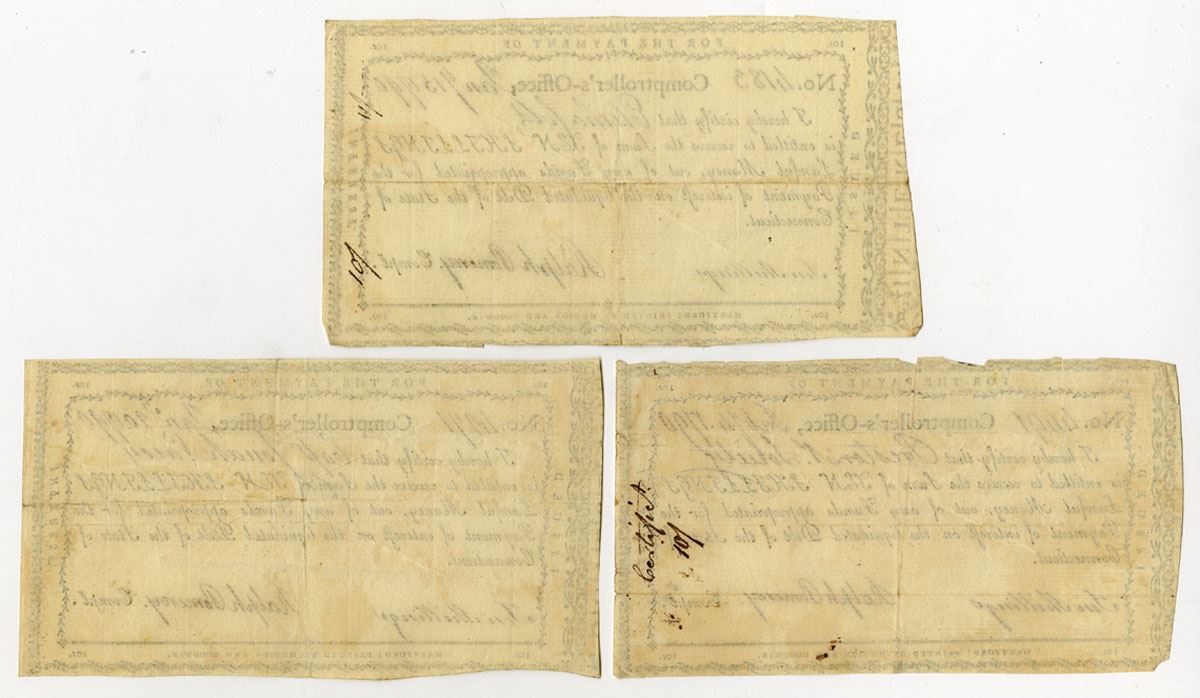 FOR THE PAYMENT OF
No. 4185 Comptroller's-Office,
I hereby certify that
is entitled to receive the Sum of TEN SHILLINGS
Lawful Money, out of any Funds appropriated for the
Payment of interest on the liquidated Debt of the State of
Connecticut.
Ten Shillings Ralph Pomeroy Compt.
HARTFORD: PRINTED BY HUDSON AND GOODWIN.
INTEREST
ISSUED
10/
FOR THE PAYMENT OF
No. Comptroller's-Office,
I hereby certify that
is entitled to receive the Sum of TEN SHILLINGS
Lawful Money, out of any Funds appropriated for the
Payment of interest on the liquidated Debt of the State of
Connecticut.
Ten Shillings Ralph Pomeroy Compt.
HARTFORD: PRINTED BY HUDSON AND GOODWIN.
INTEREST
ISSUED
FOR THE PAYMENT OF
No. Comptroller's-Office, 1790
I hereby certify that Society
is entitled to receive the Sum of TEN SHILLINGS
Lawful Money, out of any Funds appropriated for the
Payment of interest on the liquidated Debt of the State of
Connecticut.
Ten Shillings Ralph Pomeroy Compt.
HARTFORD: PRINTED BY HUDSON AND GOODWIN.
ISSUED
Certifict
10/